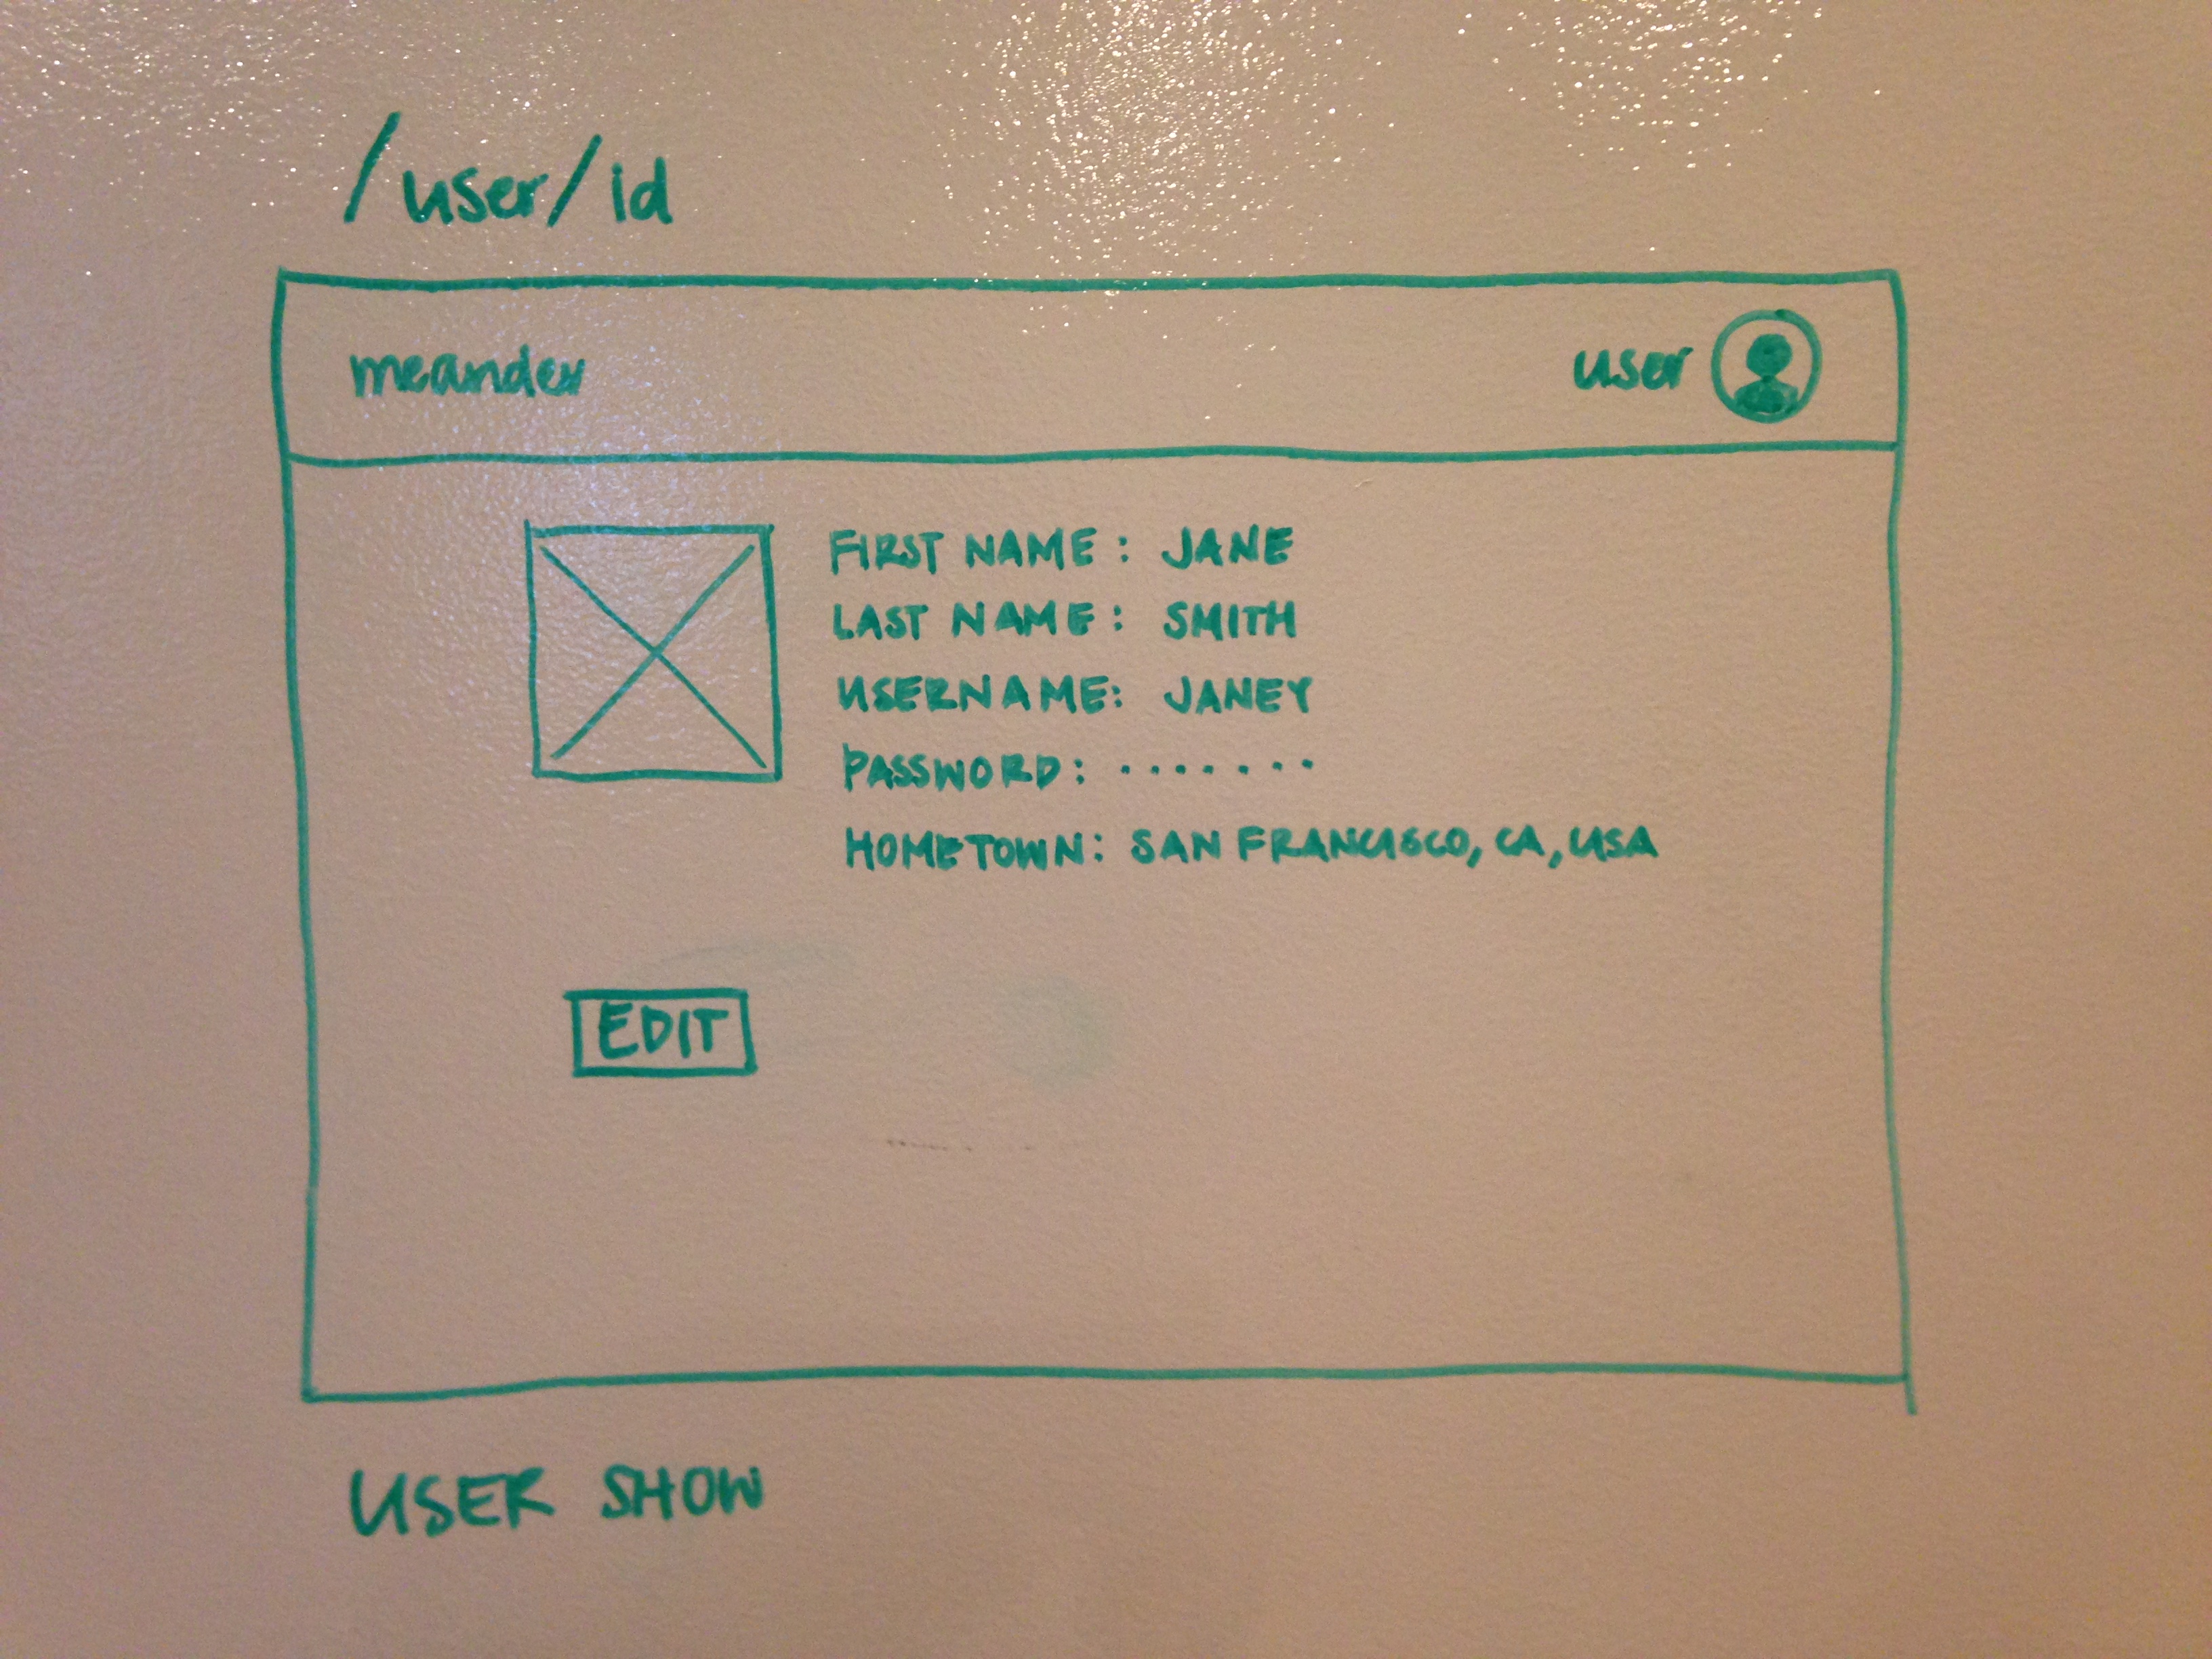 /user/id
meander
user
FIRST NAME: JANE
LAST NAME: SMITH
USERNAME: JANEY
PASSWORD: .......
HOMETOWN: SAN FRANCISCO, CA, USA
EDIT
USER SHOW